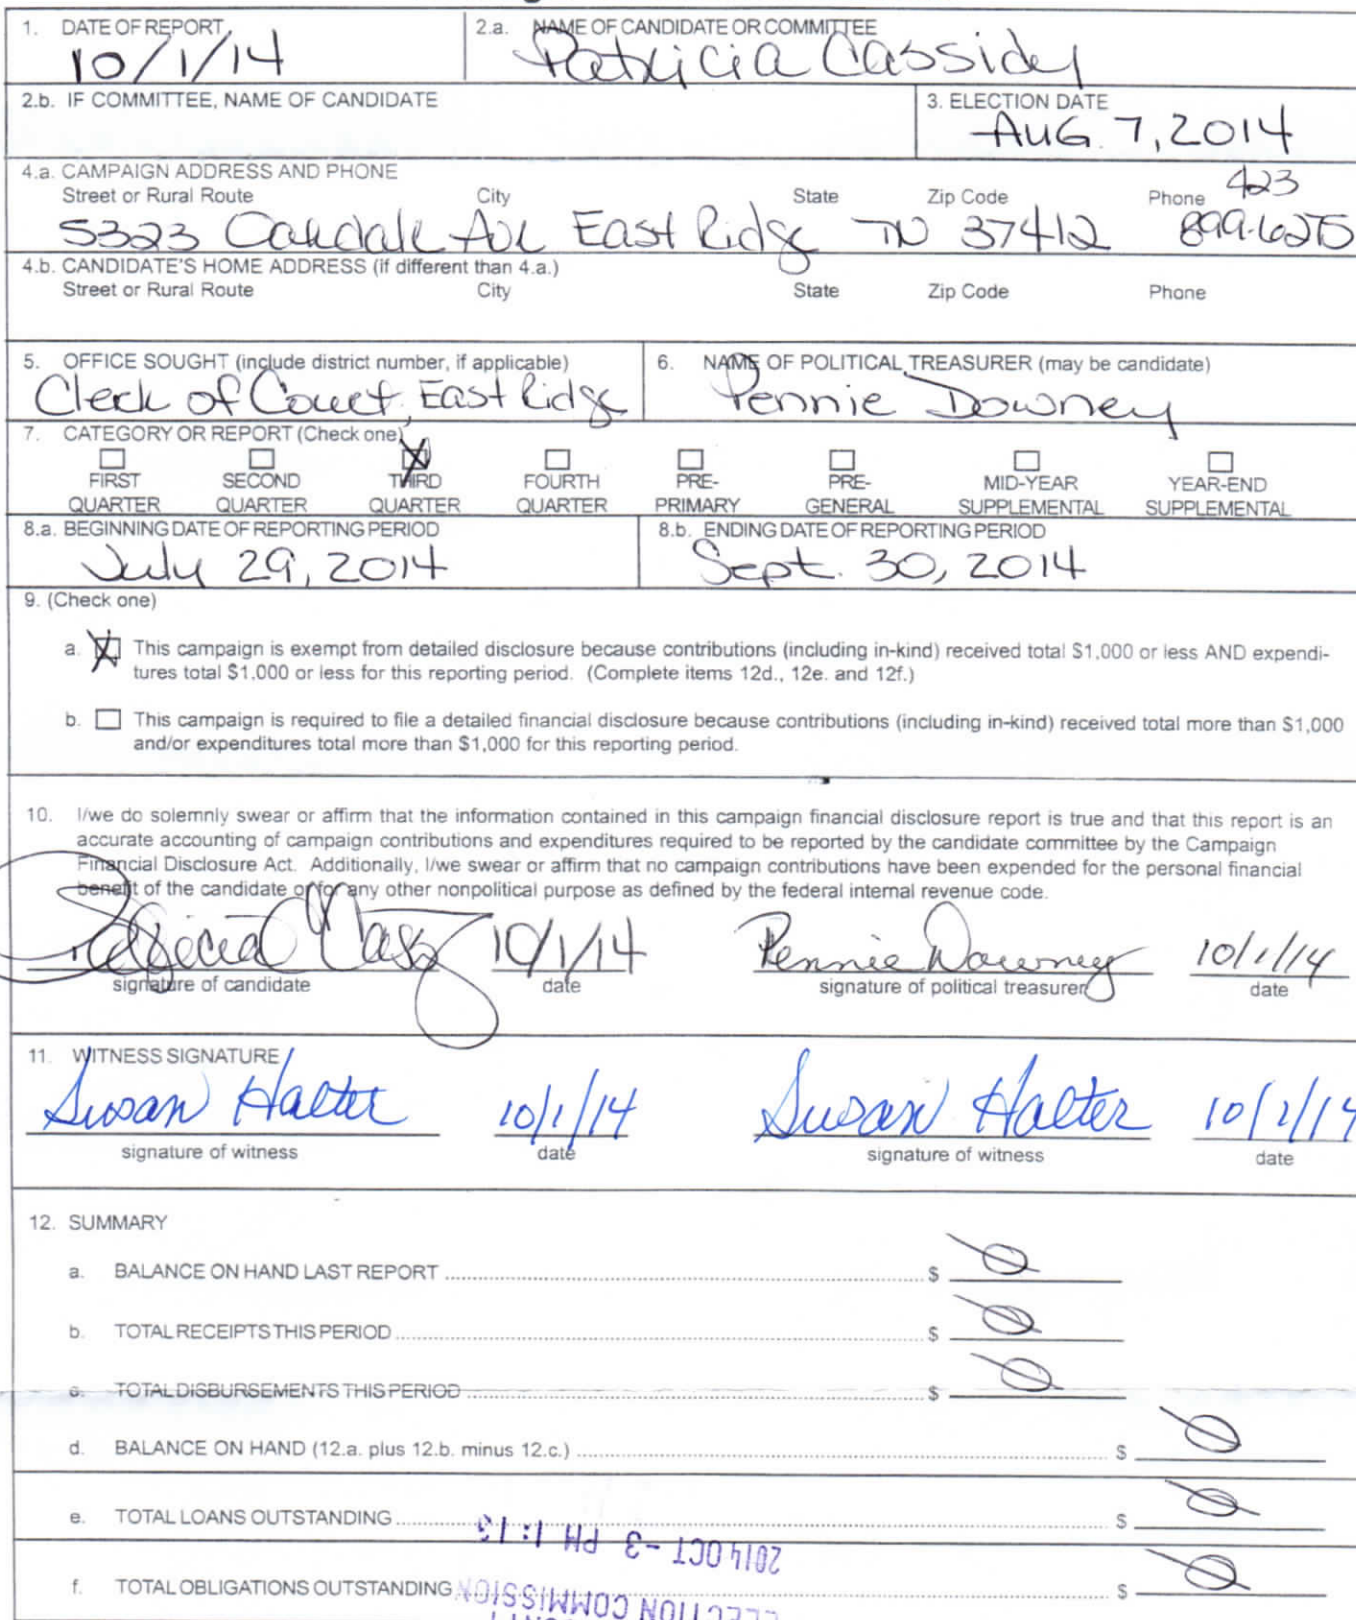 1. DATE OF REPORT
10/1/14
2.a. NAME OF CANDIDATE OR COMMITTEE
Patricia Cassidy
2.b. IF COMMITTEE, NAME OF CANDIDATE
3. ELECTION DATE
AUG. 7, 2014
4.a. CAMPAIGN ADDRESS AND PHONE
Street or Rural Route City State Zip Code Phone 423
5323 Oakdale Ave East Ridge TN 37412 899-6275
4.b. CANDIDATE'S HOME ADDRESS (if different than 4.a.)
Street or Rural Route City State Zip Code Phone
5. OFFICE SOUGHT (include district number, if applicable)
Clerk of Court, East Ridge
6. NAME OF POLITICAL TREASURER (may be candidate)
Pennie Downey
7. CATEGORY OR REPORT (Check one)
FIRST QUARTER
SECOND QUARTER
THIRD QUARTER
FOURTH QUARTER
PRE-PRIMARY
PRE-GENERAL
MID-YEAR SUPPLEMENTAL
YEAR-END SUPPLEMENTAL
8.a. BEGINNING DATE OF REPORTING PERIOD
July 29, 2014
8.b. ENDING DATE OF REPORTING PERIOD
Sept. 30, 2014
9. (Check one)
a. X This campaign is exempt from detailed disclosure because contributions (including in-kind) received total $1,000 or less AND expendi-
tures total $1,000 or less for this reporting period. (Complete items 12d., 12e. and 12f.)
b. This campaign is required to file a detailed financial disclosure because contributions (including in-kind) received total more than $1,000
and/or expenditures total more than $1,000 for this reporting period.
10. I/we do solemnly swear or affirm that the information contained in this campaign financial disclosure report is true and that this report is an
accurate accounting of campaign contributions and expenditures required to be reported by the candidate committee by the Campaign
Financial Disclosure Act. Additionally, I/we swear or affirm that no campaign contributions have been expended for the personal financial
benefit of the candidate or for any other nonpolitical purpose as defined by the federal internal revenue code.
10/1/14 Pennie Downey 10/1/14
signature of candidate date signature of political treasurer date
11. WITNESS SIGNATURE
Susan Halter 10/1/14 Susan Halter 10/1/14
signature of witness date signature of witness date
12. SUMMARY
a. BALANCE ON HAND LAST REPORT $ 0
b. TOTAL RECEIPTS THIS PERIOD $ 0
c. TOTAL DISBURSEMENTS THIS PERIOD $ 0
d. BALANCE ON HAND (12.a. plus 12.b. minus 12.c.) $ 0
e. TOTAL LOANS OUTSTANDING $ 0
2014 OCT -3 PM 1:13
f. TOTAL OBLIGATIONS OUTSTANDING $ 0
ELECTION COMMISSION